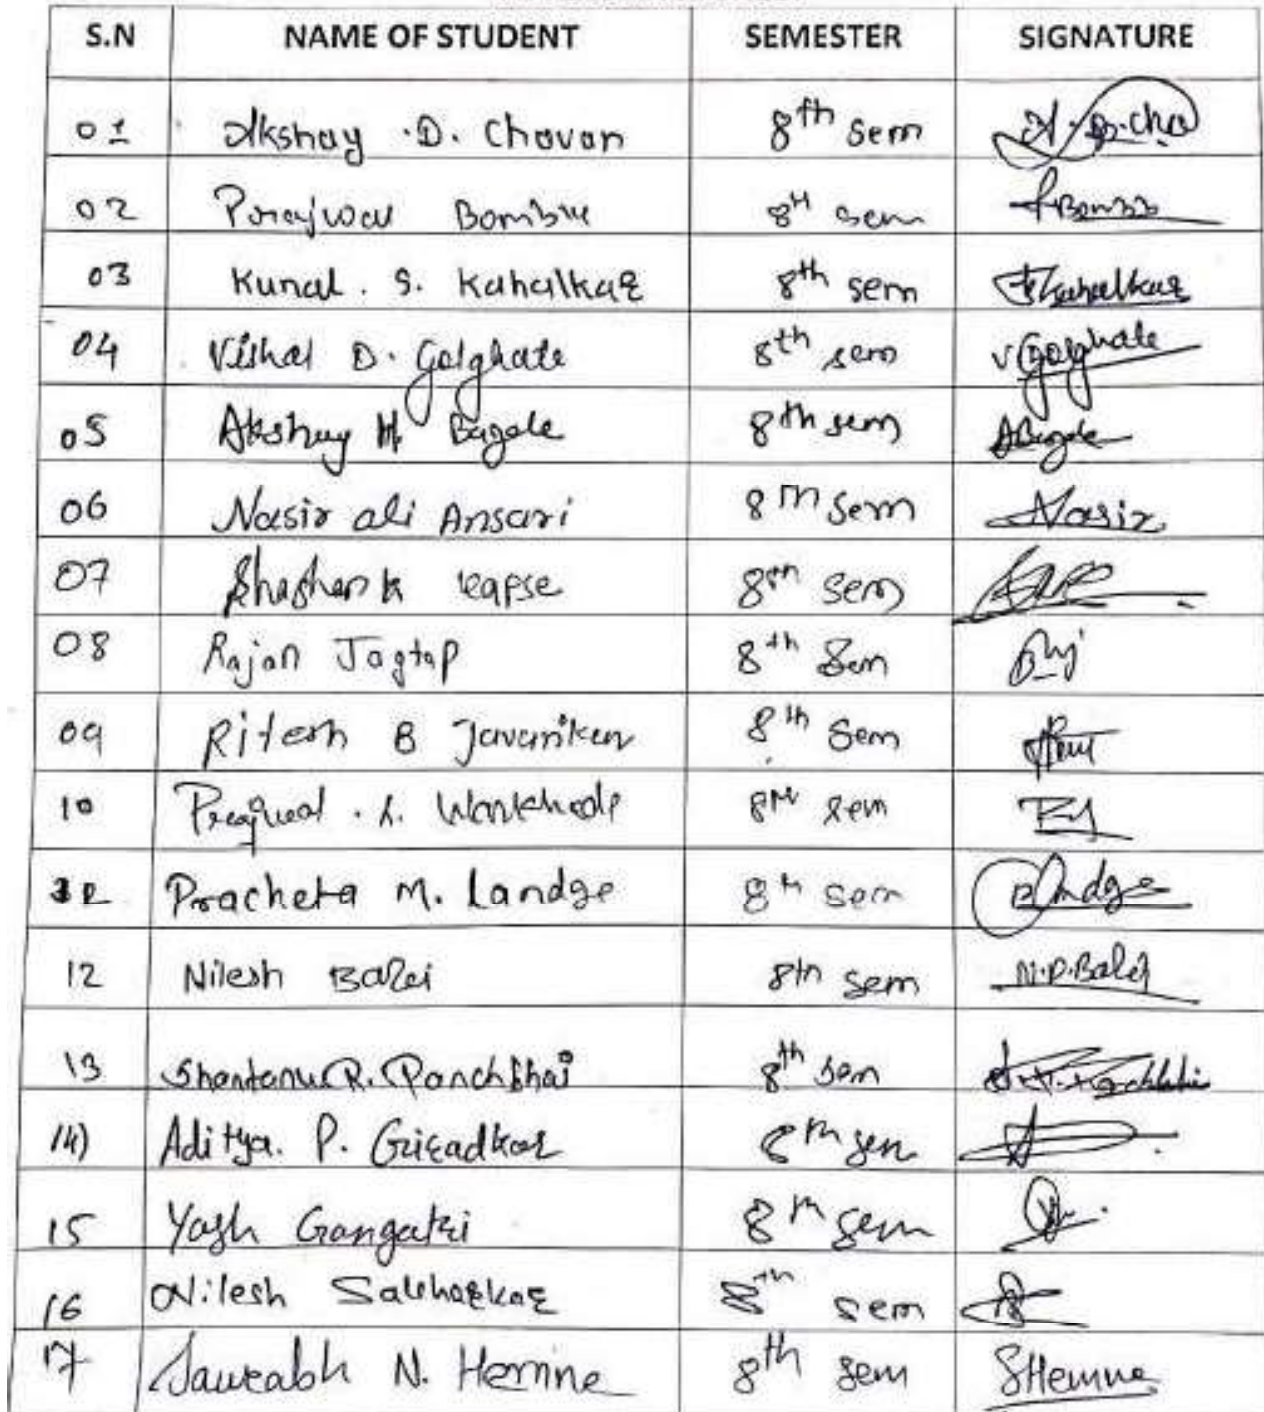 S.N NAME OF STUDENT SEMESTER SIGNATURE
01 Akshay .D. Chavan 8th sem A.D.Cha
02 Prajwal Bomble 8th sem
03 Kunal . S. Kahalkar 8th sem Kahalkar
04 Vishal D. Golghate 8th sem V Golghate
05 Akshay H. Bagale 8th sem ABagale
06 Nasir ali Ansari 8th sem Nasir
07 Shashank Kapse 8th sem
08 Rajan Jagtap 8th Sem
09 Ritesh B 8th Sem
10 Prajwal . 8th sem
Pracheta M. Landge 8th sem Landge
12 Nilesh Balei 8th sem N.P.Balei
13 Shantanu R. Panchbhai 8th sem
14) Aditya. P. Giradkar 8th sem
15 Yash Gangatri 8th sem
16 Nilesh Sakharkar 8th sem
17 Saurabh N. Hemne 8th sem SHemne